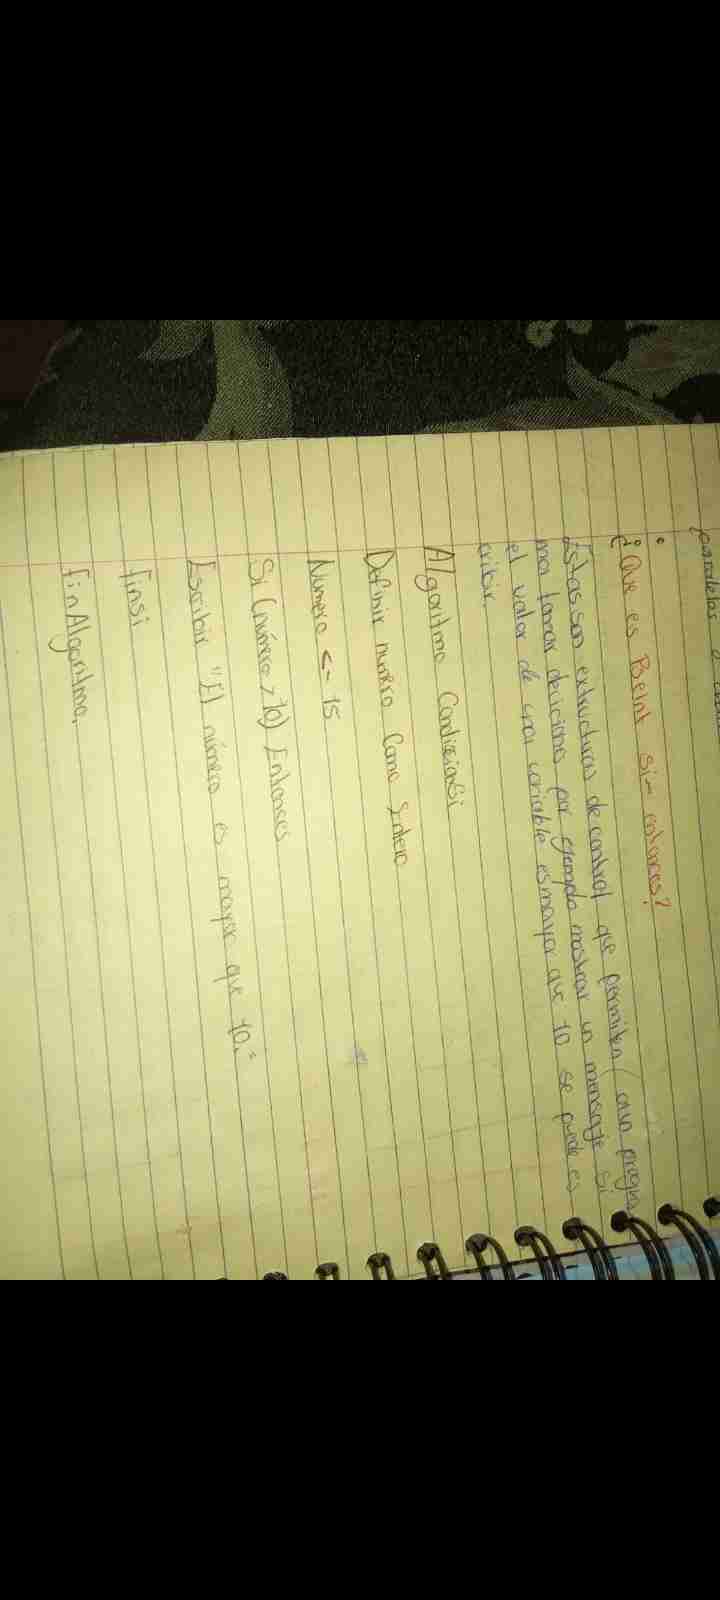 paralelas
¿Que es PSeInt sin entonces?
Estas son extructuras de control que permiten a un progra
ma tomar deciciones por ejemplo mostrar un mensaje si
el valor de una variable es mayor que 10 se puede es
cribir.
Algoritmo CondicionSi
Definir numero Como Entero
Numero <- 15
Si (número > 10) Entonces
Escribir "El número es mayor que 10."
finsi
finAlgoritmo.